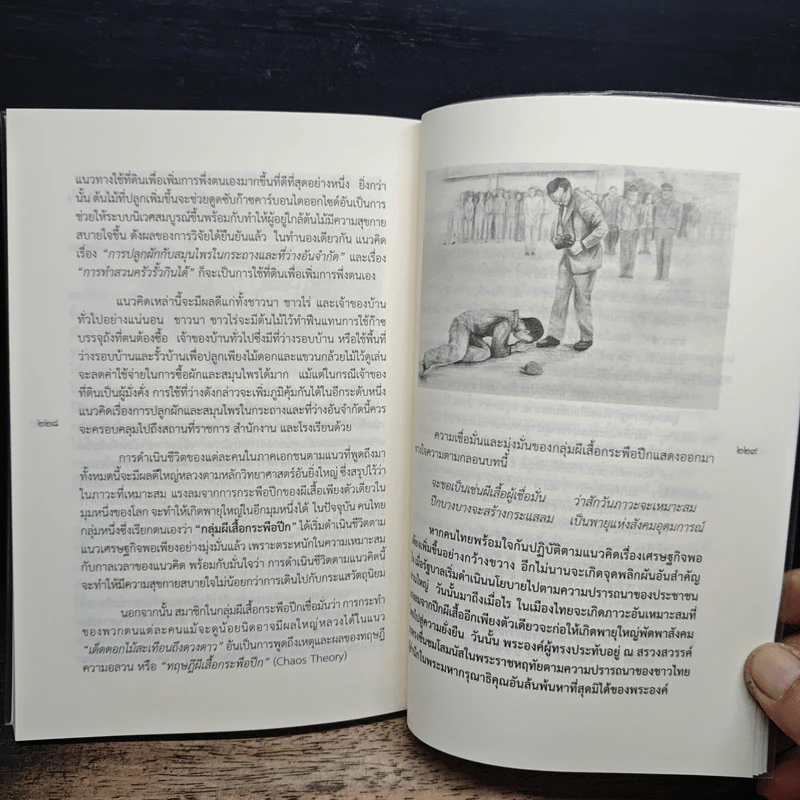 แนวทางใช้ที่ดินเพื่อเพิ่มการพึ่งตนเองมากขึ้นที่ดีที่สุดอย่างหนึ่ง ยิ่งกว่า
นั้น ต้นไม้ที่ปลูกเพิ่มขึ้นจะช่วยดูดซับก๊าซคาร์บอนไดออกไซด์อันเป็นการ
ช่วยให้ระบบนิเวศสมบูรณ์ขึ้นพร้อมกับทำให้ผู้อยู่ใกล้ต้นไม้มีความสุขกาย
สบายใจขึ้น ดังผลของการวิจัยได้ยืนยันแล้ว ในทำนองเดียวกัน แนวคิด
เรื่อง “การปลูกผักกับสมุนไพรในกระถางและที่ว่างอันจำกัด” และเรื่อง
“การทำสวนครัวรั้วกินได้” ก็จะเป็นการใช้ที่ดินเพื่อเพิ่มการพึ่งตนเอง
แนวคิดเหล่านี้จะมีผลดีแก่ทั้งชาวนา ชาวไร่ และเจ้าของบ้าน
ทั่วไปอย่างแน่นอน ชาวนา ชาวไร่จะมีต้นไม้ไว้ทำฟืนแทนการใช้ก๊าซ
บรรจุถังที่ตนต้องซื้อ เจ้าของบ้านทั่วไปซึ่งมีที่ว่างรอบบ้าน หรือใช้พื้นที่
ว่างรอบบ้านและรั้วบ้านเพื่อปลูกเพียงไม้ดอกและแขวนกล้วยไม้ไว้ดูเล่น
จะลดค่าใช้จ่ายในการซื้อผักและสมุนไพรได้มาก แม้แต่ในกรณีเจ้าของ
ที่ดินเป็นผู้มั่งคั่ง การใช้ที่ว่างดังกล่าวจะเพิ่มภูมิคุ้มกันได้ในอีกระดับหนึ่ง
แนวคิดเรื่องการปลูกผักและสมุนไพรในกระถางและที่ว่างอันจำกัดนี้ควร
จะครอบคลุมไปถึงสถานที่ราชการ สำนักงาน และโรงเรียนด้วย
๒๒๘
การดำเนินชีวิตของแต่ละคนในภาคเอกชนตามแนวที่พูดถึงมา
ทั้งหมดนี้จะมีผลดีใหญ่หลวงตามหลักวิทยาศาสตร์อันยิ่งใหญ่ ซึ่งสรุปไว้ว่า
ในภาวะที่เหมาะสม แรงลมจากการกระพือปีกของผีเสื้อเพียงตัวเดียวใน
มุมหนึ่งของโลก จะทำให้เกิดพายุใหญ่ในอีกมุมหนึ่งได้ ในปัจจุบัน คนไทย
กลุ่มหนึ่งซึ่งเรียกตนเองว่า “กลุ่มผีเสื้อกระพือปีก” ได้เริ่มดำเนินชีวิตตาม
แนวเศรษฐกิจพอเพียงอย่างมุ่งมั่นแล้ว เพราะตระหนักในความเหมาะสม
กับกาลเวลาของแนวคิด พร้อมกับมั่นใจว่า การดำเนินชีวิตตามแนวคิดนี้
จะทำให้มีความสุขกายสบายใจไม่น้อยกว่าการเดินไปกับกระแสวัตถุนิยม
นอกจากนั้น สมาชิกในกลุ่มผีเสื้อกระพือปีกเชื่อมั่นว่า การกระทำ
ของพวกตนแต่ละคนแม้จะดูน้อยนิดอาจมีผลใหญ่หลวงได้ในแนว
“เด็ดดอกไม้สะเทือนถึงดวงดาว” อันเป็นการพูดถึงเหตุและผลของทฤษฎี
ความอลวน หรือ “ทฤษฎีผีเสื้อกระพือปีก” (Chaos Theory)
ความเชื่อมั่นและมุ่งมั่นของกลุ่มผีเสื้อกระพือปีกแสดงออกมา
ทางใจความตามกลอนบทนี้
๒๒๙
จะขอเป็นเช่นผีเสื้อผู้เชื่อมั่น ว่าสักวันภาวะจะเหมาะสม
ปีกบางบางจะสร้างกระแสลม เป็นพายุแห่งสังคมอุดมการณ์
หากคนไทยพร้อมใจกันปฏิบัติตามแนวคิดเรื่องเศรษฐกิจพอ
เพียงเพิ่มขึ้นอย่างกว้างขวาง อีกไม่นานจะเกิดจุดพลิกผันอันสำคัญ
เมื่อรัฐบาลเริ่มดำเนินนโยบายไปตามความปรารถนาของประชาชน
ส่วนใหญ่ วันนั้นมาถึงเมื่อไร ในเมืองไทยจะเกิดภาวะอันเหมาะสมที่
ลมจากปีกผีเสื้ออีกเพียงตัวเดียวจะก่อให้เกิดพายุใหญ่พัดพาสังคม
ไปสู่ความยั่งยืน วันนั้น พระองค์ผู้ทรงประทับอยู่ ณ สรวงสวรรค์
ชื่นชมโสมนัสในพระราชหฤทัยตามความปรารถนาของชาวไทย
ในพระมหากรุณาธิคุณอันล้นพ้นหาที่สุดมิได้ของพระองค์